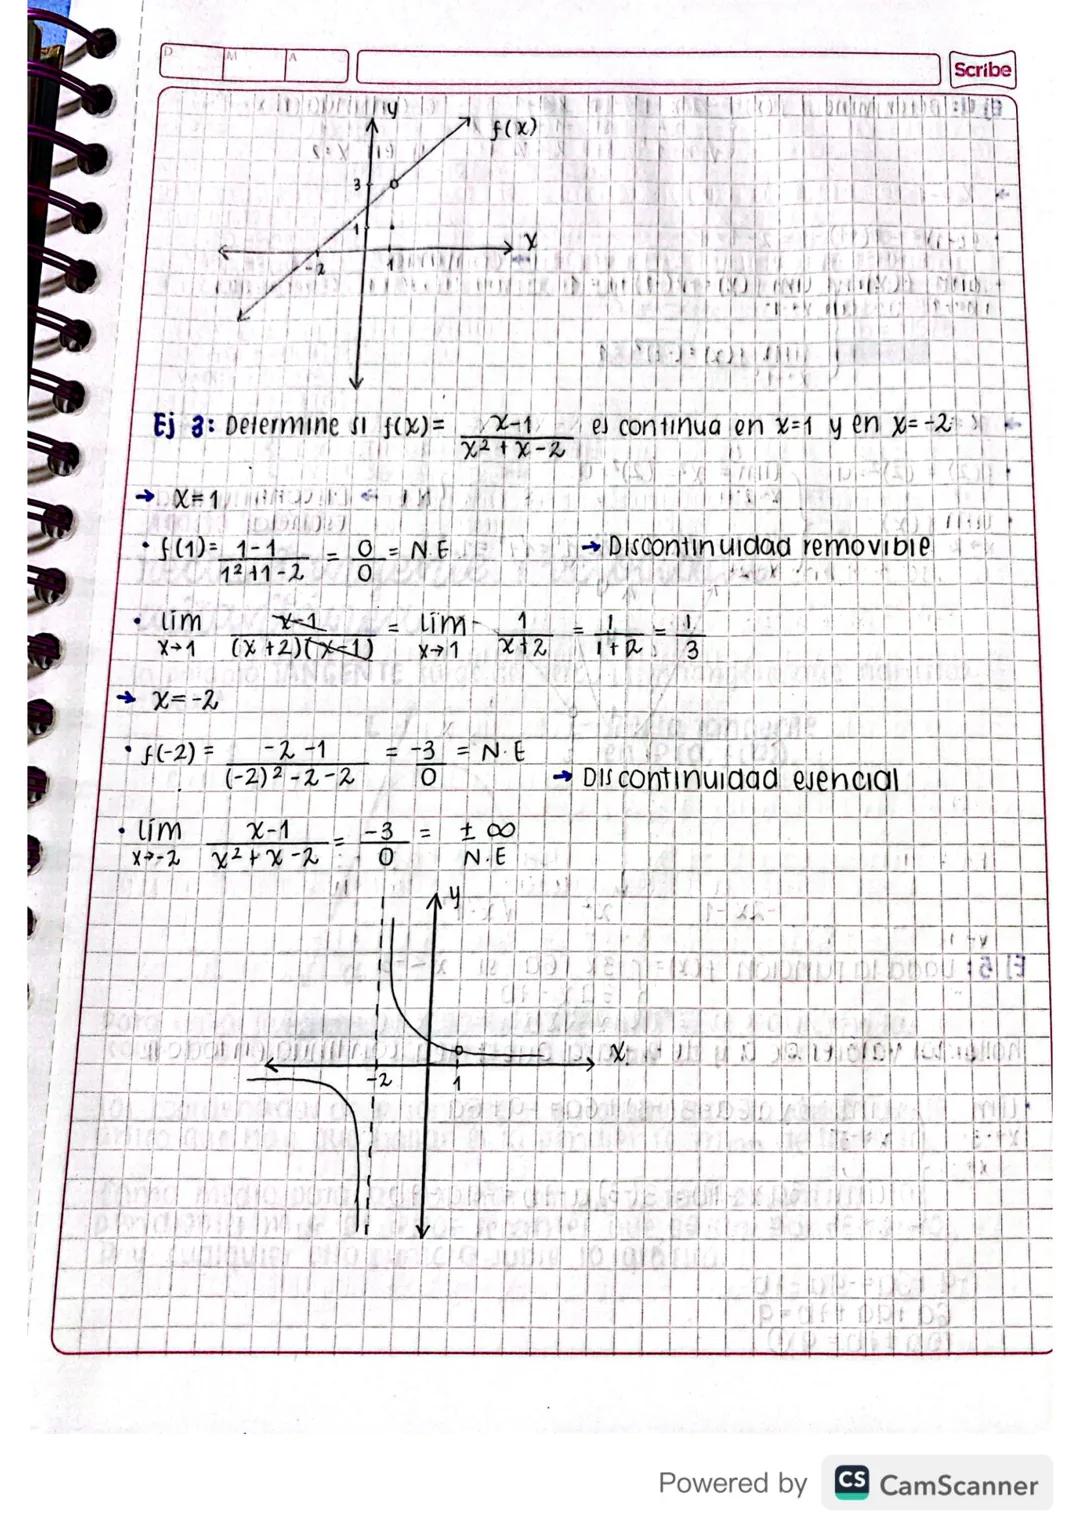 D M A
Scribe
y
f(x)
3
1
x
-2 1
Ej 3: Determine si f(x)= x-1 / x²+x-2 es continua en x=1 y en x=-2
→ x=1
• f(1)= 1-1 / 1²+1-2 = 0/0 = N.E → Discontinuidad removible
• lím x→1 x-1 / (x+2)(x-1) = lím x→1 1 / x+2 = 1 / 1+2 = 1/3
→ x=-2
• f(-2) = -2-1 / (-2)²-2-2 = -3/0 = N.E → Discontinuidad esencial
• lím x→-2 x-1 / x²+x-2 = -3/0 = ±∞ N.E
y
x
-2 1
Powered by CS CamScanner